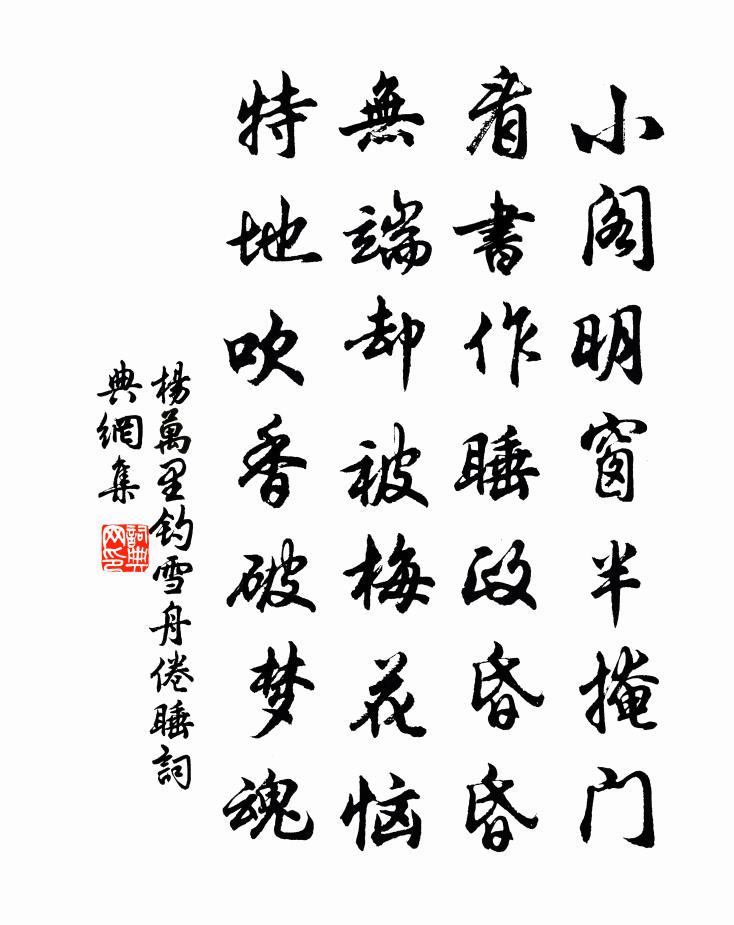 小阁明窗半掩门
看書作睡政昏昏
無端却被梅花恼
特地吹香破梦魂
楊萬里釣雪舟倦睡詞
典網集
詞典
网印